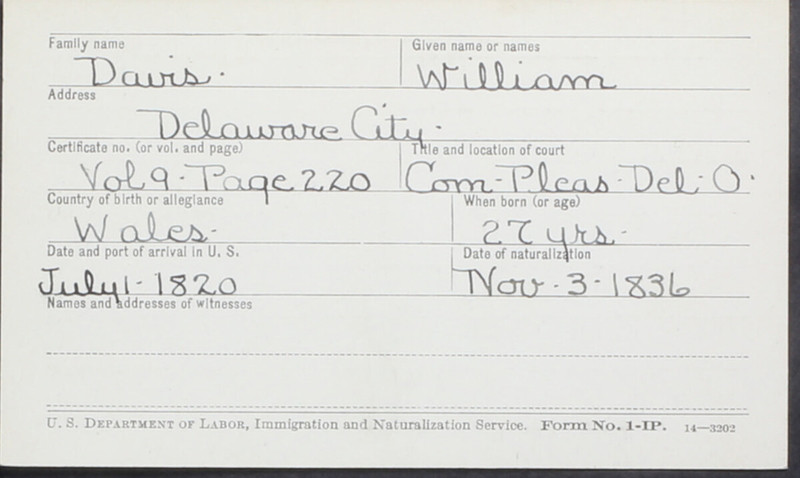 Family name Given name or names
Davis. William
Address
Delaware City.
Certificate no. (or vol. and page) Title and location of court
Vol 9 - Page 220 Com-Pleas-Del-O.
Country of birth or allegiance When born (or age)
Wales- 27 yrs-
Date and port of arrival in U. S. Date of naturalization
July 1-1820 Nov-3-1836
Names and addresses of witnesses
U. S. Department of Labor, Immigration and Naturalization Service. Form No. 1-IP. 14—3202